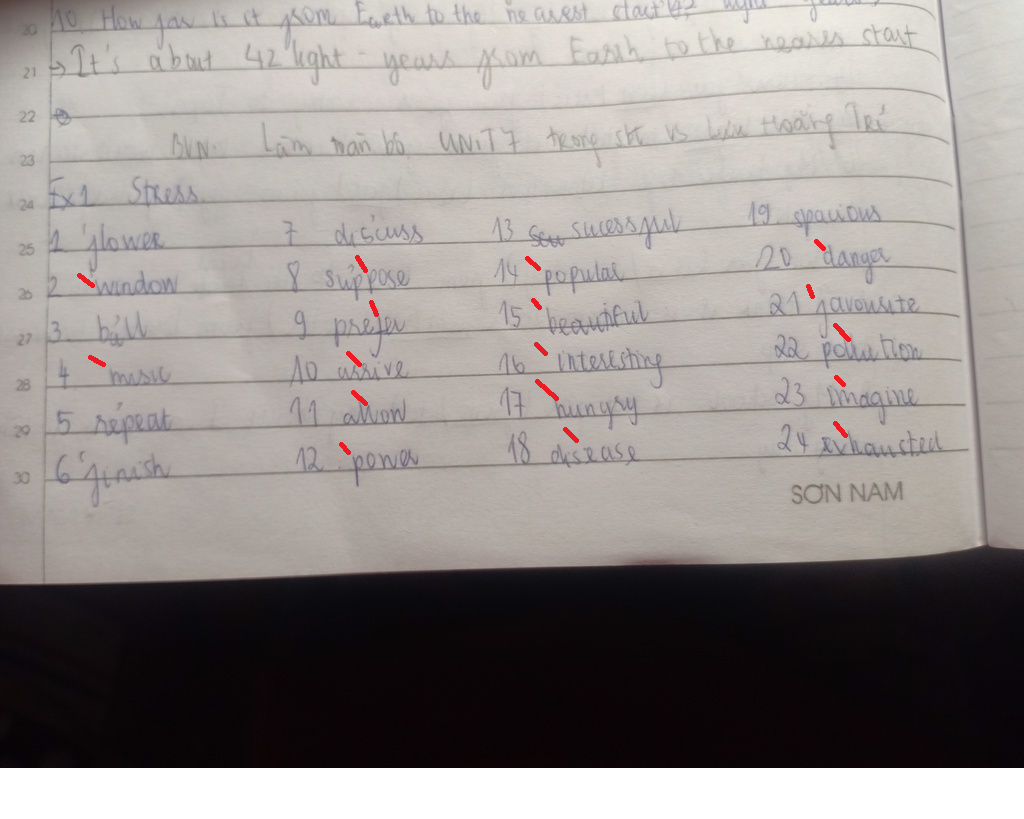 10. How far is it from Earth to the nearest start
→ It's about 42 light - years from Earth to the neares start
BVN: Làm toàn bộ UNIT 7 trong sbt vs Lưu Hoằng Trí
Ex1 Stress
1 'flower 7 discuss 13 sucessful 19 spacious
2 'window 8 suppose 14 'popular 20 'danger
3. ball 9 prefer 15 'beautiful 21 'favourite
4 'music 10 arrive 16 'interesting 22 pollution
5 repeat 11 allow 17 'hungry 23 imagine
6 'finish 12 'power 18 disease 24 exhausted
SƠN NAM
20
21
22
23
24
25
26
27
28
29
30